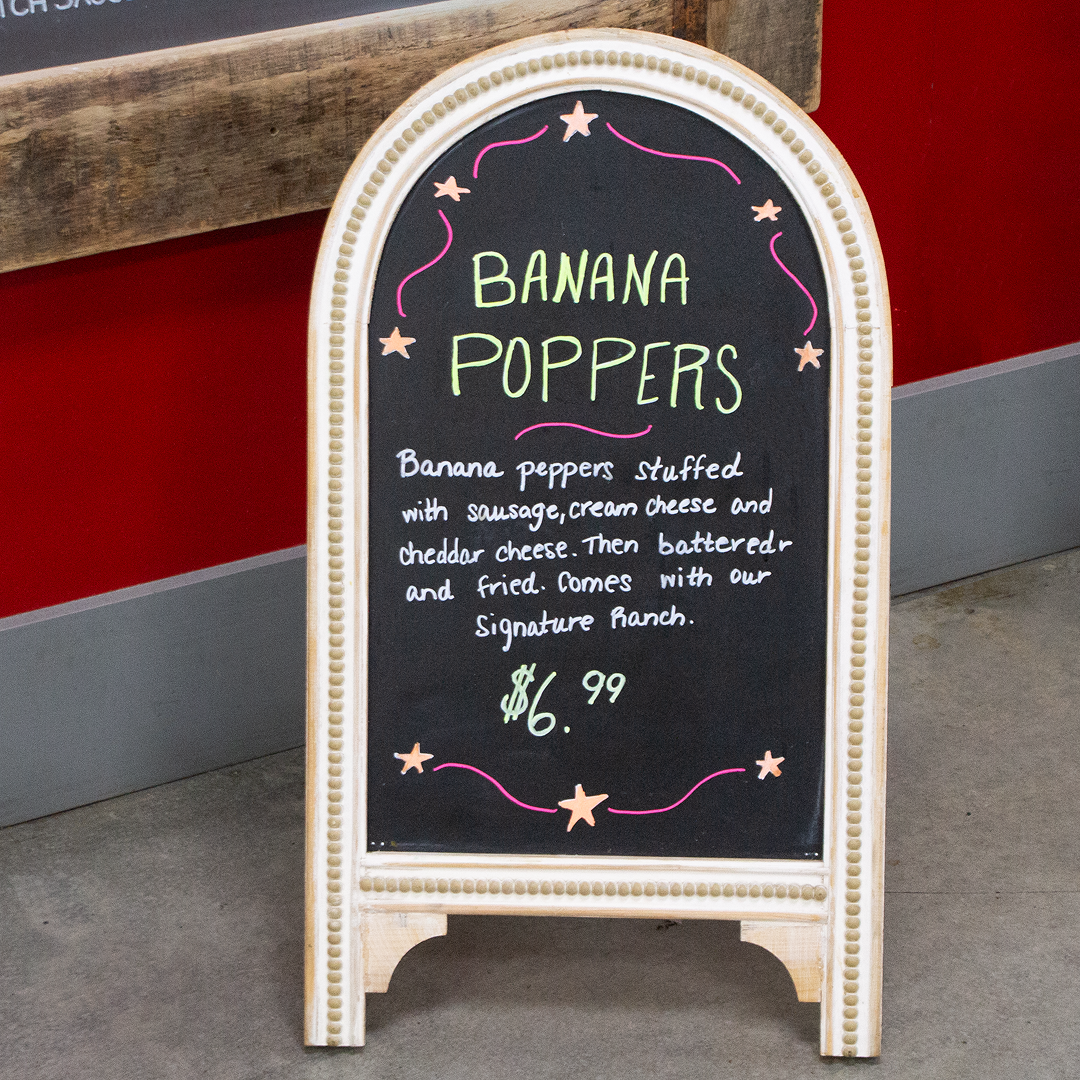 TCH SAUC
BANANA
POPPERS
Banana peppers stuffed
with sausage, cream cheese and
cheddar cheese. Then batteredr
and fried. Comes with our
Signature Ranch.
$6.99